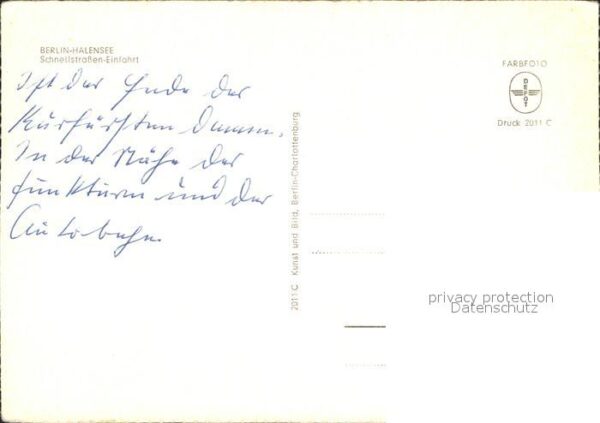 BERLIN-HALENSEE
Schnellstraßen-Einfahrt
Ist der Ende der
Kürfürsten Damm.
In der Nähe der
Funkturm und der
Autobahn.
2011 C Kunst und Bild, Berlin-Charlottenburg
FARBFOTO
DEFOT
Druck 2011 C
privacy protection
Datenschutz